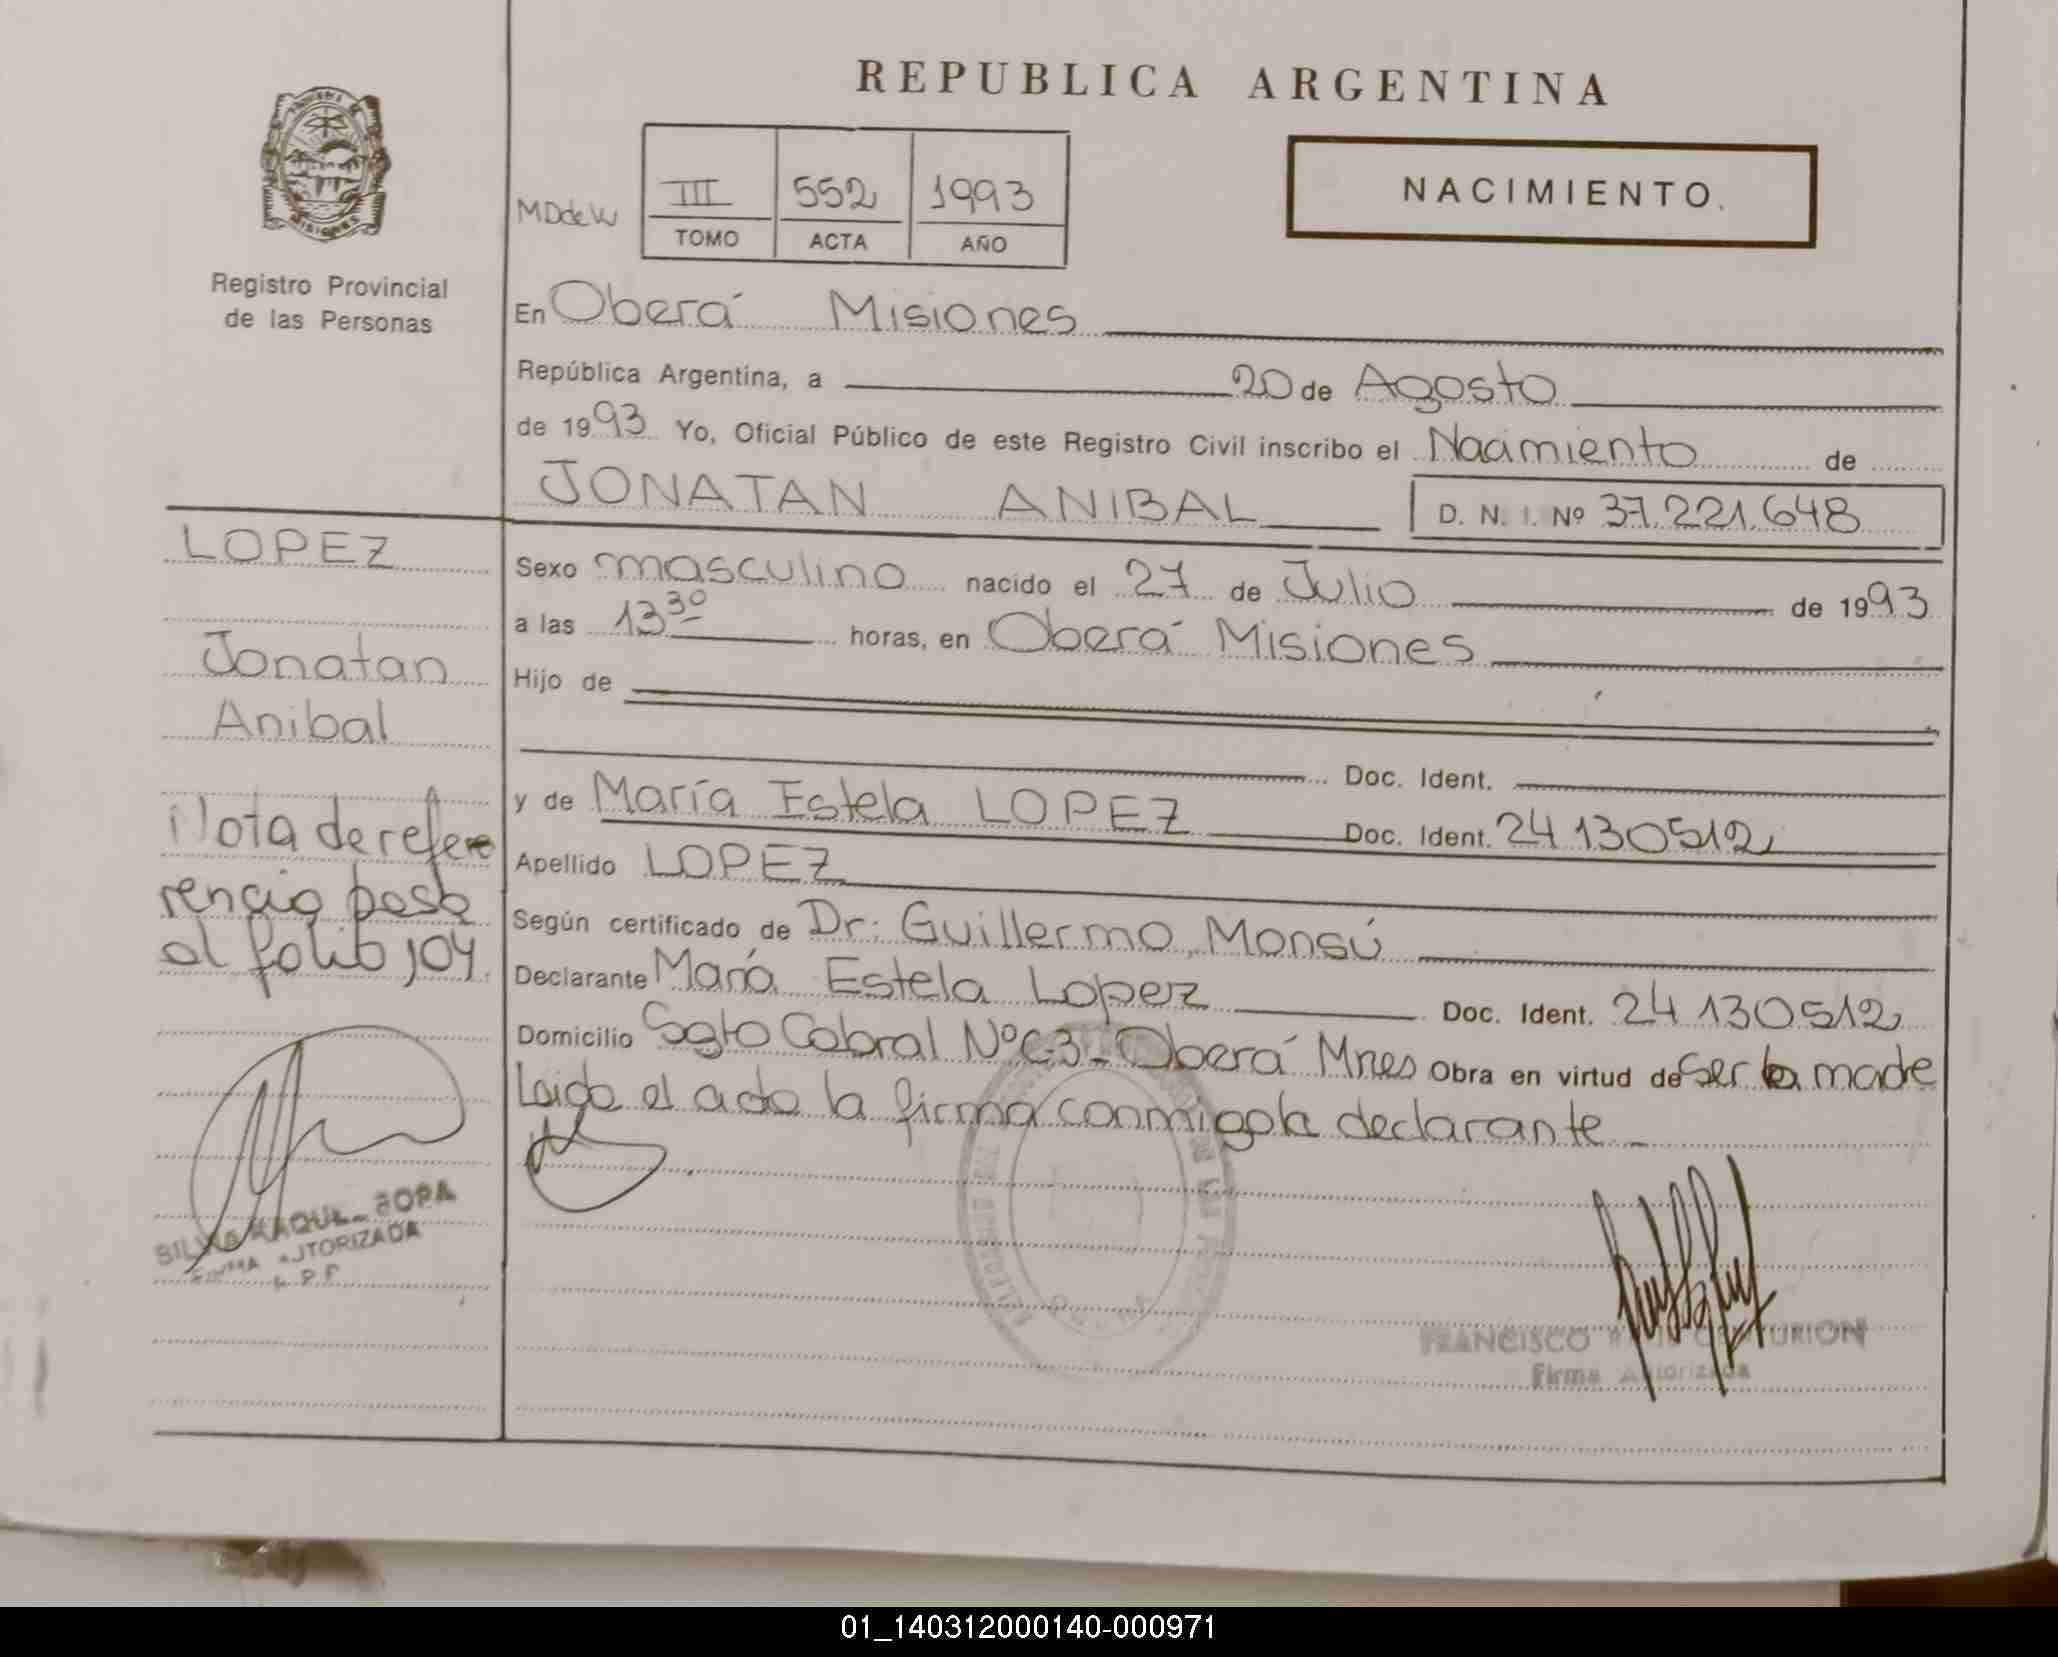 REPUBLICA ARGENTINA
PROVINCIA DE MISIONES
Registro Provincial
de las Personas
MDdeW
III 552 1993
TOMO ACTA AÑO
NACIMIENTO.
En Oberá Misiones
República Argentina, a 20 de Agosto
de 1993 Yo, Oficial Público de este Registro Civil inscribo el Nacimiento de
JONATAN ANIBAL D. N. I. Nº 37.221.648
Sexo masculino nacido el 27 de Julio de 1993
a las 13 30 horas, en Oberá Misiones
Hijo de
Doc. Ident.
y de María Estela LOPEZ Doc. Ident. 24 130512
Apellido LOPEZ
Según certificado de Dr. Guillermo Monsú
Declarante María Estela Lopez Doc. Ident. 24 130512
Domicilio Sgto Cabral Nº C3 - Oberá Mnes Obra en virtud de ser la madre
Leida el acta la firma conmigo la declarante -
LOPEZ
Jonatan
Anibal
Nota de refe
rencia pasa
al folio 104
SILVIA RAQUEL SOPA
FIRMA AUTORIZADA
R.P.P.
FRANCISCO CENTURION
Firma Autorizada
01_140312000140-000971